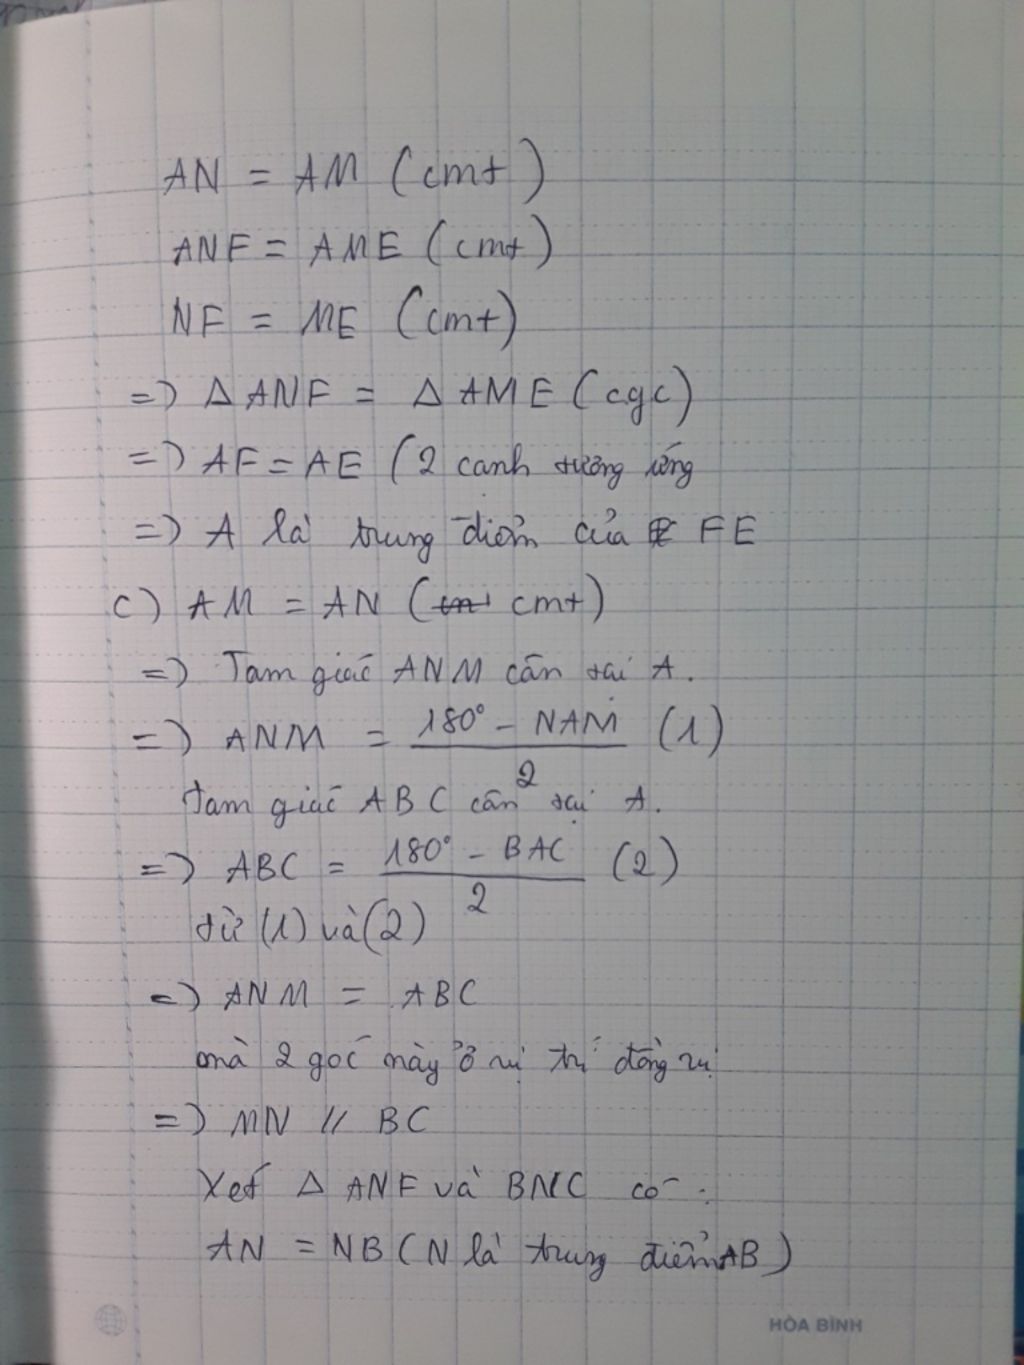 AN = AM (cmt)
ANF = AME (cmt)
NF = ME (cmt)
=> Δ ANF = Δ AME (cgc)
=> AF = AE (2 canh tương ứng
=> A là trung điểm của FE
c) AM = AN (cmt)
=> Tam giác ANM cân tại A.
=> ANM = 180° - NAM / 2 (1)
Tam giác ABC cân tại A.
=> ABC = 180° - BAC / 2 (2)
từ (1) và (2)
=> ANM = ABC
mà 2 góc này ở vị trí đồng vị
=> MN // BC
Xét Δ ANF và BNC có :
AN = NB (N là trung điểm AB)
HÒA BÌNH